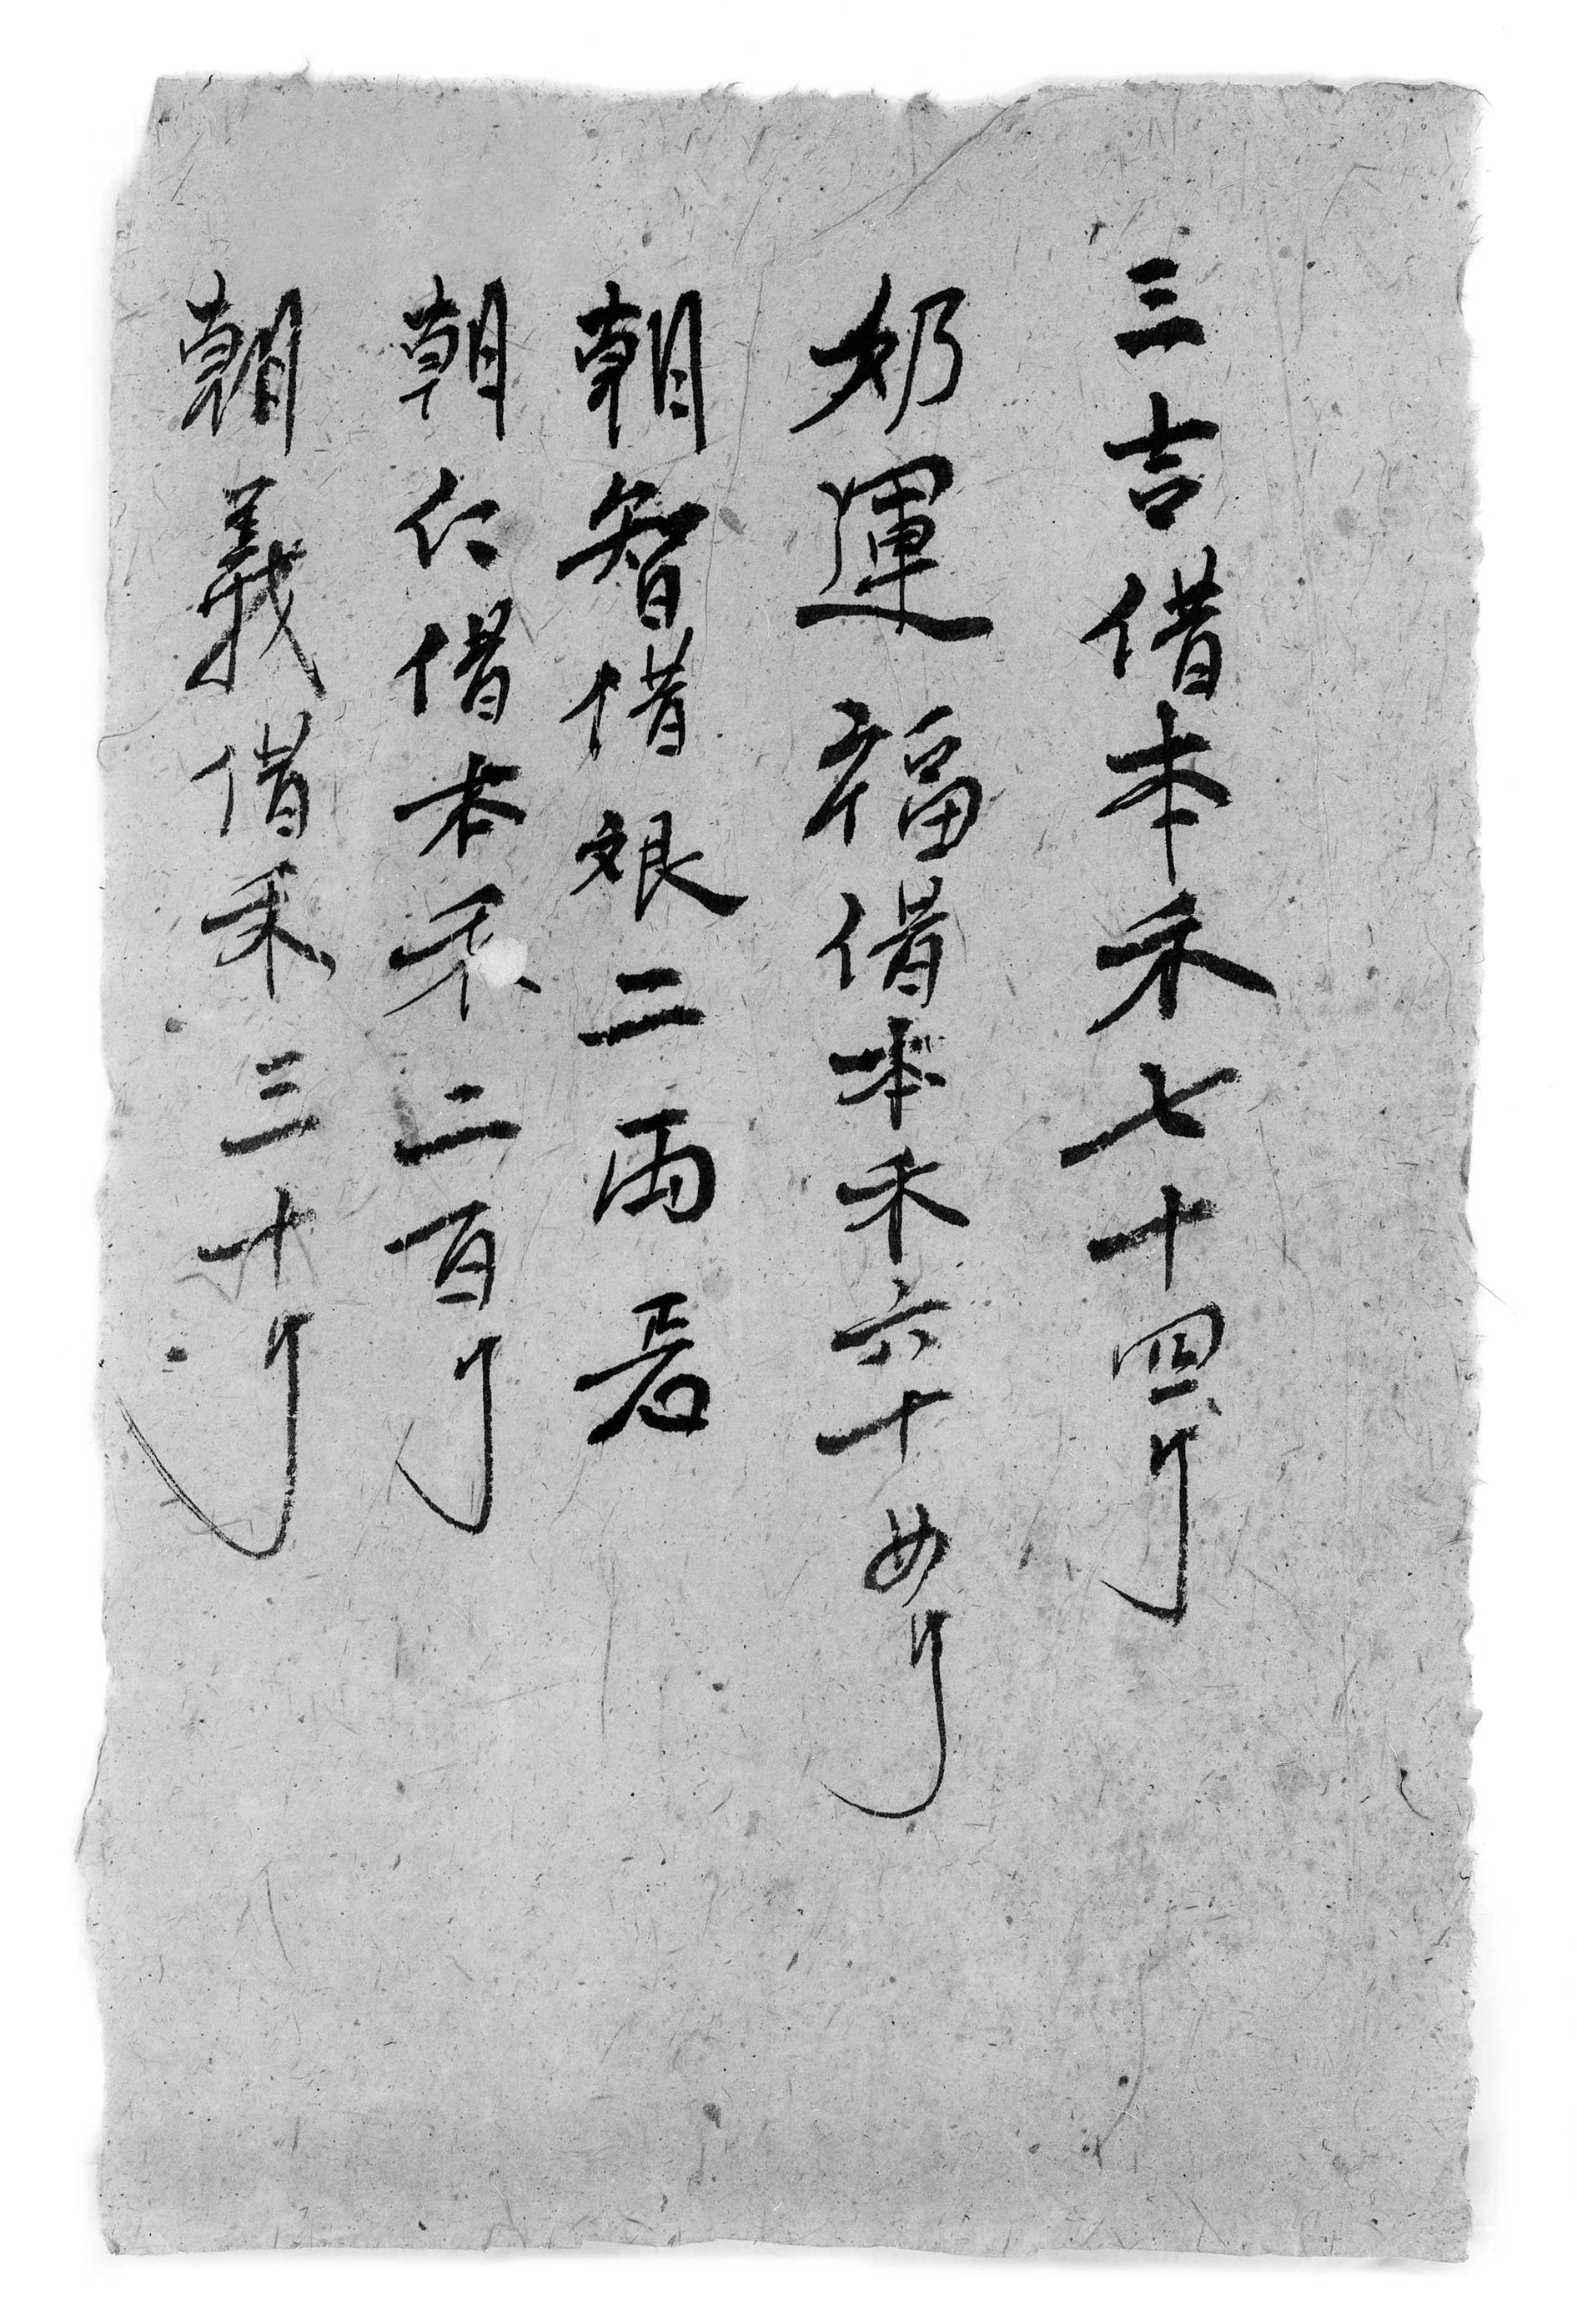 三吉借本禾七十四斤
奶運福借本禾六十斤
朝智借銀二両
朝仁借本禾二百斤
朝義借禾三十斤